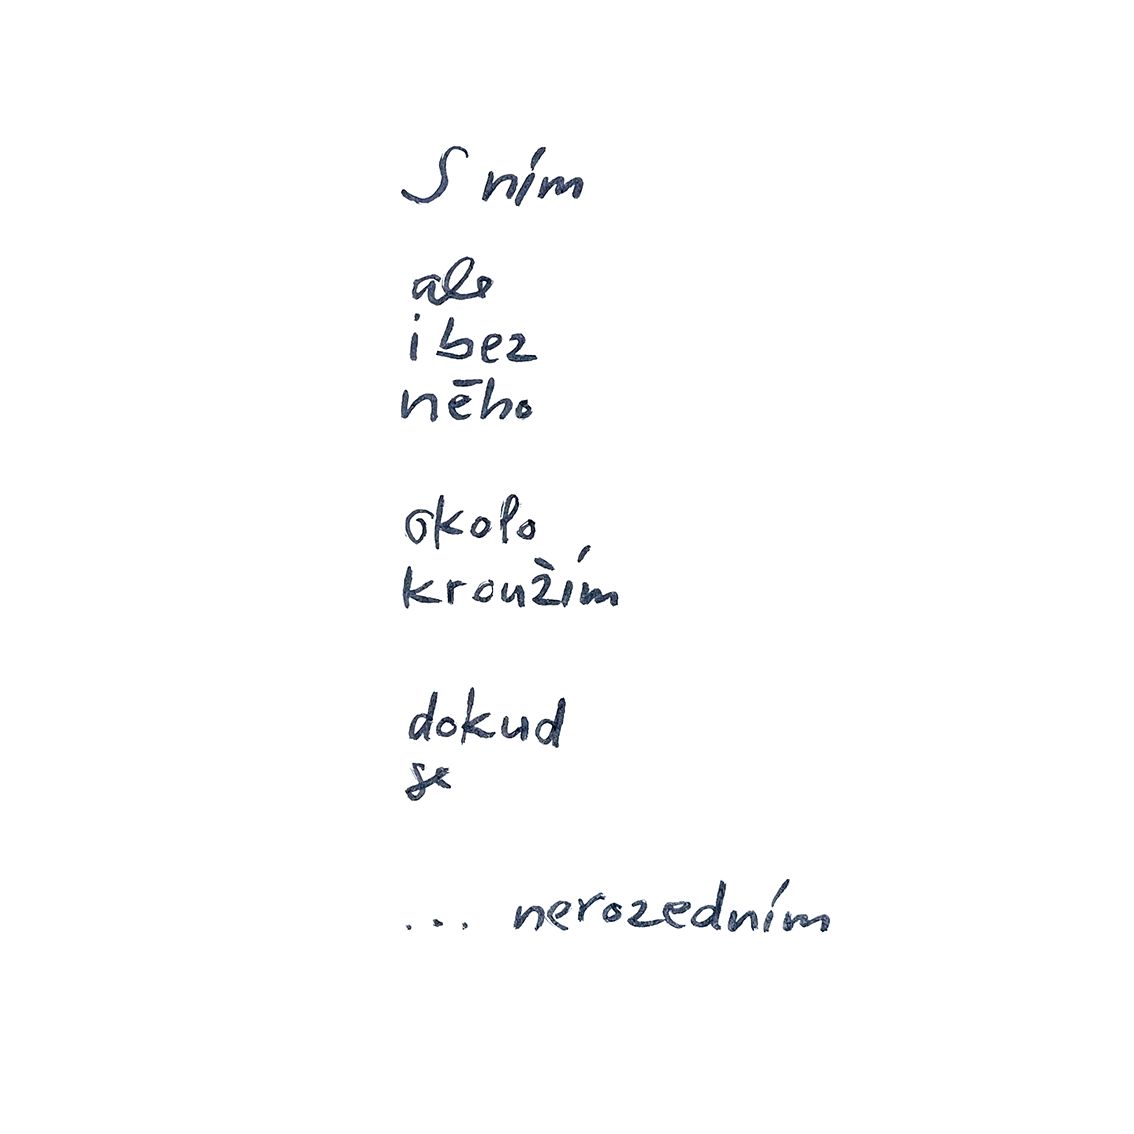 S ním
ale
i bez
něho
okolo
kroužím
dokud
se
... nerozedním